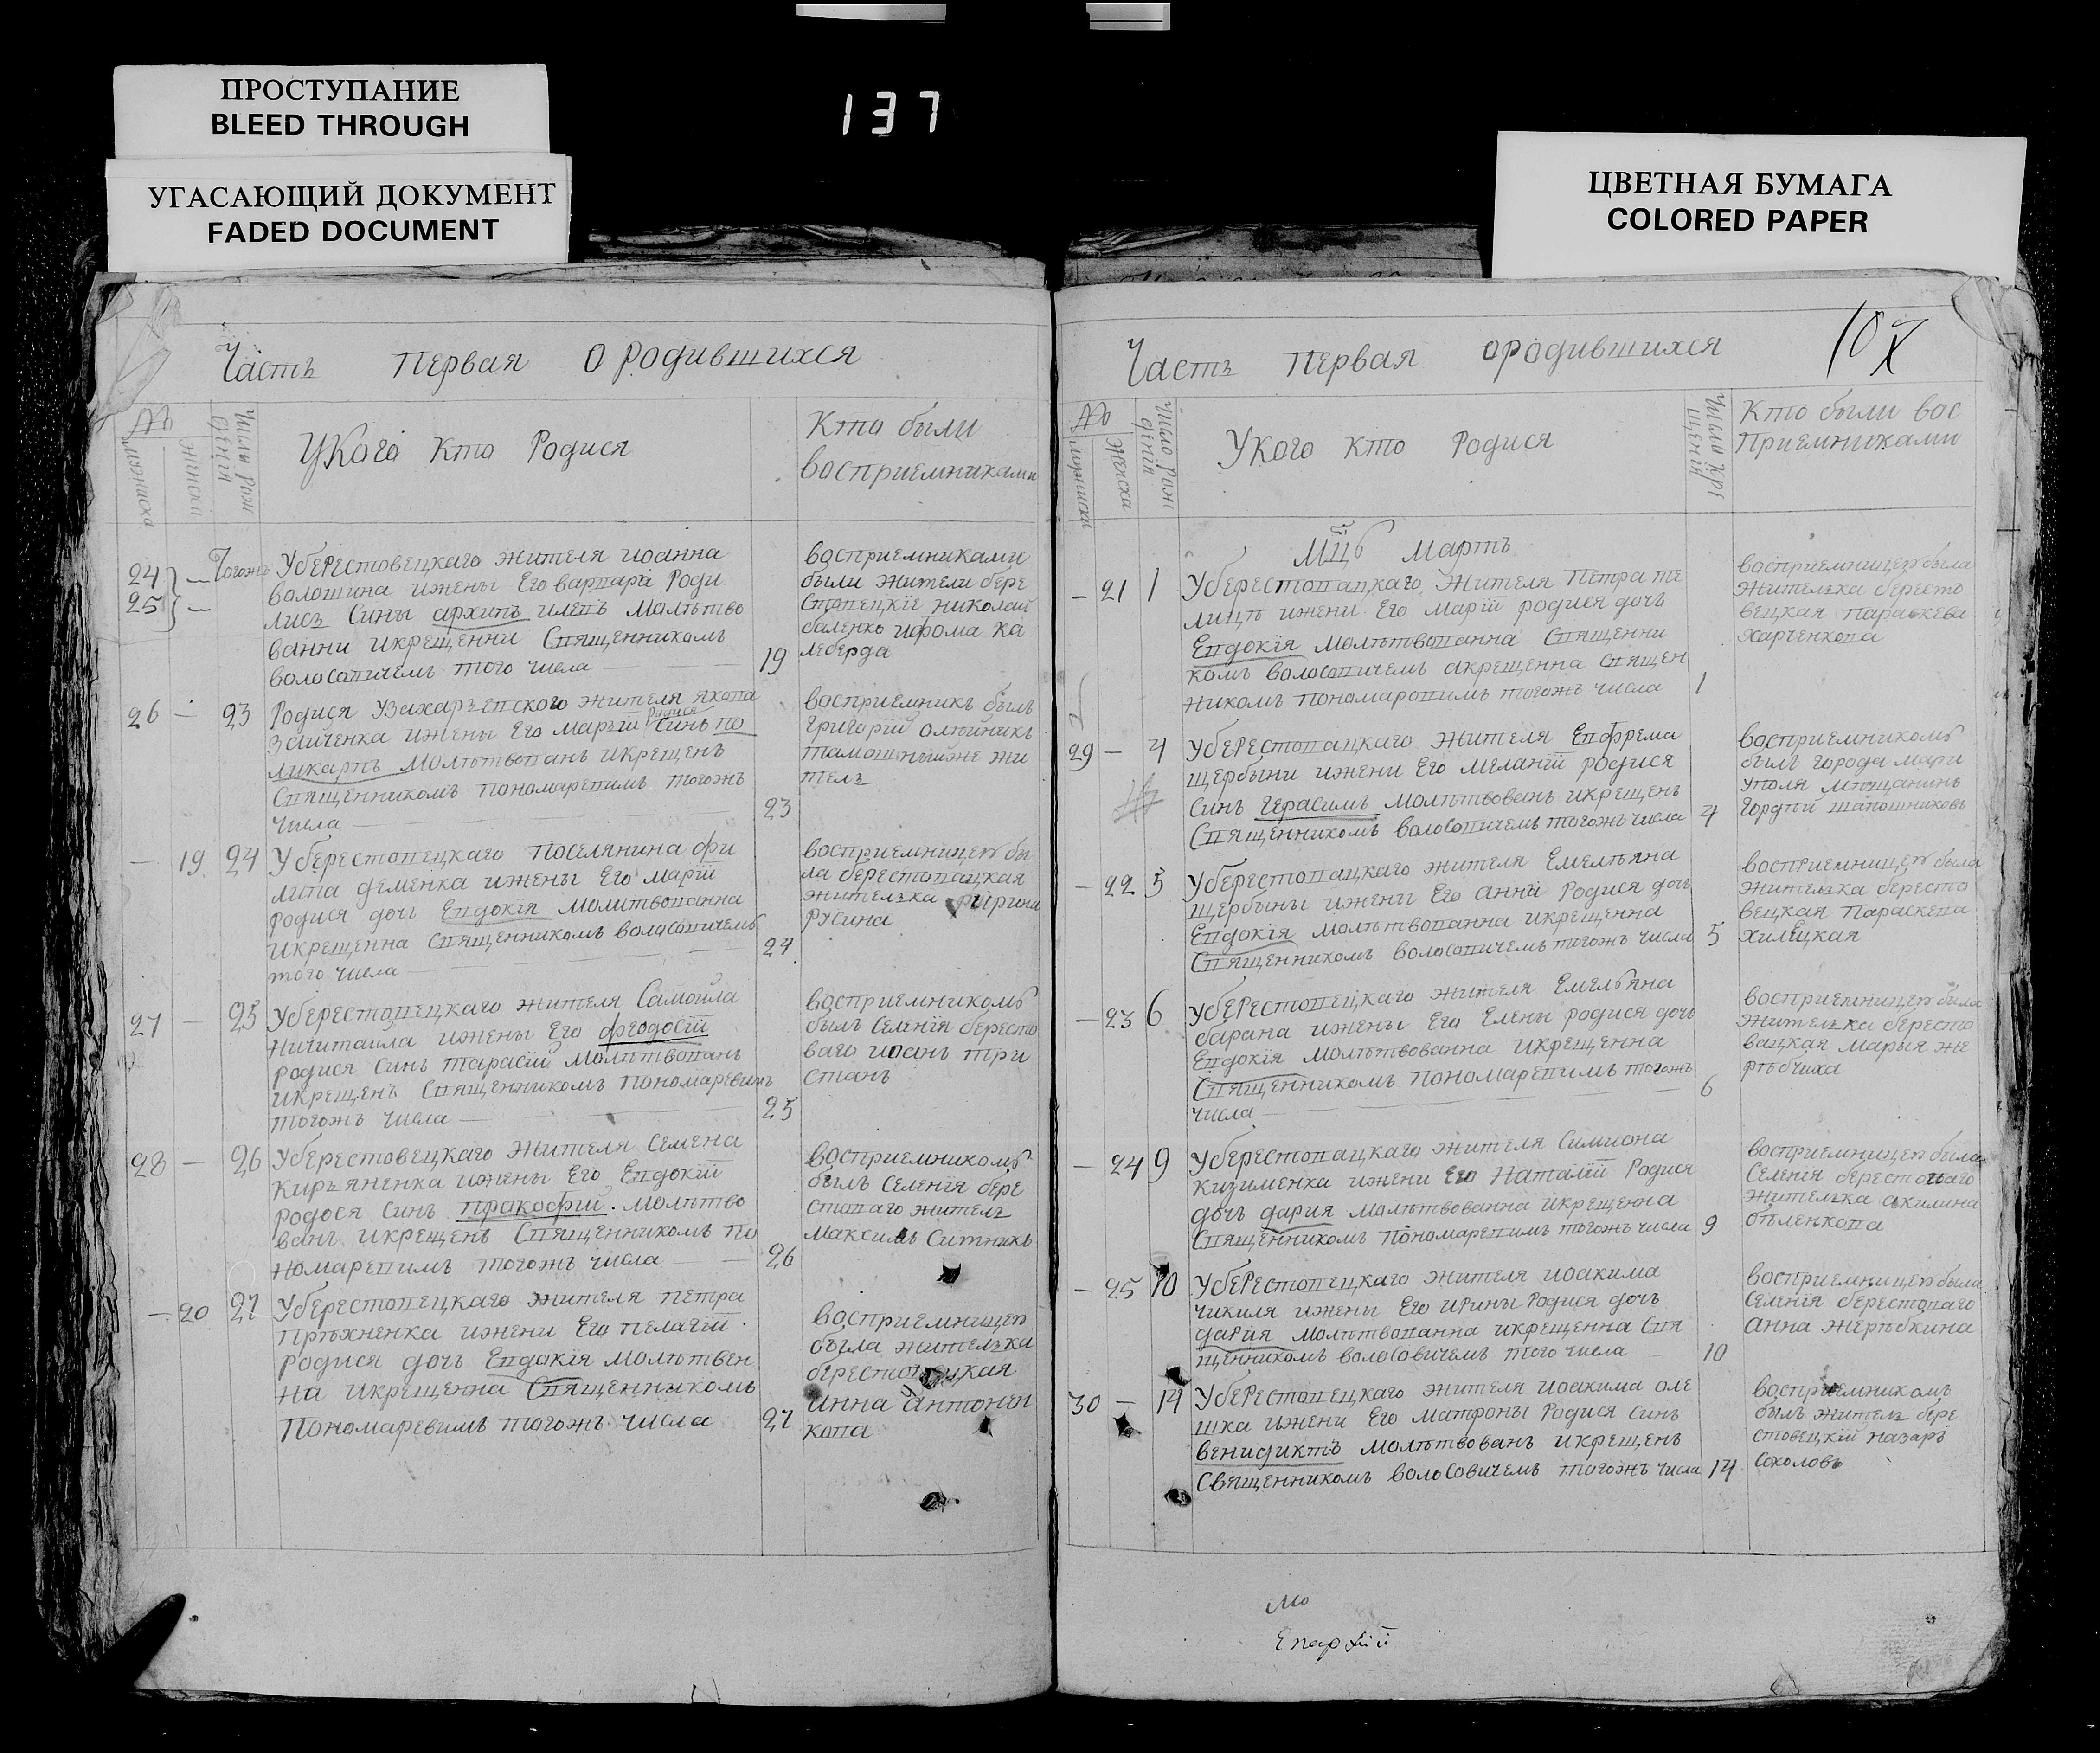 137
ПРОСТУПАНИЕ
BLEED THROUGH
УГАСАЮЩИЙ ДОКУМЕНТ
FADED DOCUMENT
ЦВЕТНАЯ БУМАГА
COLORED PAPER
Часть Первая О родившихся
№
мужиска
женска
Число рож
денія
Укого кто Родися
Кто были
восприемниками
24 — Тогожъ Уберестовецкаго жителя иоанна
25 — волошина ижены Его варвара Роди
лисъ Сины архипъ илевъ Молътво
ванни икрещенни Священникомъ
волосовичемъ того числа 19
восприемниками
были жители бере
стовецкіе николай
баленко ифома ка
леберда
26 — 23 Родися Узахарьевского жителя якова
Зайченка ижены Его марьіи родися Синъ по
ликарпъ Молътвованъ икрещенъ
Священникомъ пономаревимъ тогожъ
числа 23
восприемникъ былъ
григорій олейникъ
тамошныйже жи
тель
— 19 24 Уберестовецкаго поселянина фи
липа деменка ижены Его маріи
родися дочъ Евдокія молитвованна
икрещенна Священникомъ волосовичемъ
того числа 24
восприемницею бы
ла берестовацкая
жителька ирина
русина
27 — 25 Уберестовецкаго жителя Самоила
ничитаила ижены Его феодосіи
родися Синъ тарасій молътвованъ
икрещенъ Священникомъ пономаревимъ
тогожъ числа 25
восприемникомъ
былъ селенія бересто
ваго иоанъ три
станъ
28 — 26 Уберестовецкаго жителя Семена
Кирьяненка ижены Его Евдокіи
родося синъ прокофій молътво
ванъ икрещенъ Священникомъ по
номаревимъ тогожъ числа 26
восприемникомъ
былъ селенія бере
стоваго житель
максимъ Ситникъ
— 20 27 Уберестовецкаго жителя петра
пряхненка ижени Его пелагіи
родися дочъ Евдокія молътвен
на икрещенна Священникомъ
Пономаревимъ тогожъ числа 27
восприемницею
была жителька
берестовецкая
Анна Антонен
кова
Часть первая ородившихся
№
мужиска
Женска
Число рож
денія
Укого кто Родися
Число кре
щенія
Кто были вос
приемниками
Мцъ Мартъ
— 21 1 Уберестовацкаго жителя петра те
лицъ ижени Его маріи родися дочъ
Евдокія молътвованна Священни
комъ волосовичемъ акрещенна священ
никомъ пономаровимъ тогожъ числа 1
восприемницею была
жителька бересто
вецкая параскева
харченкова
29 — 4 Уберестовацкаго жителя Евфрема
щербыни ижени Его меланіи родися
синъ герасимъ молътвованъ икрещенъ
Священникомъ волосовичемъ тогожъ числа 4
восприемникомъ
былъ города мари
уполя мѣщанинъ
гордѣй шапошниковъ
— 22 5 Уберестовацкаго жителя Емельяна
щербыны ижени Его анни Родися дочъ
Евдокія молътвованна икрещенна
Священникомъ волосовичемъ тогожъ числа 5
восприемницею была
жителька бересто
вецкая параскева
хилецкая
— 23 6 Уберестовецкаго жителя Емельяна
барана ижены Его Елены родися дочъ
Евдокія молътвованна икрещенна
Священникомъ пономаревимъ тогожъ
числа 6
восприемницею была
жителька бересто
вацкая марья же
рѣбчиха
— 24 9 Уберестовацкаго жителя Симиона
Кизименка ижени Его Наталіи Родися
дочъ дария молътвованна икрещенна
Священникомъ пономаревимъ тогожъ числа 9
восприемницею была
селенія берестоваго
жителька акилина
бѣленкова
— 25 10 Уберестовецкаго жителя иоакима
чикиля ижены Его ирины родися дочъ
дария молътвованна икрещенна свя
щенникомъ волосовичемъ того числа 10
восприемницею была
селенія берестоваго
анна жерѣбкина
30 — 14 Уберестовецкаго жителя иоакима оле
шка ижени Его матроны родися синъ
венидиктъ молътвованъ икрещенъ
Священникомъ волосовичемъ тогожъ числа 14
восприемникомъ
былъ житель бере
стовецкій назаръ
соколовъ
Епархіи